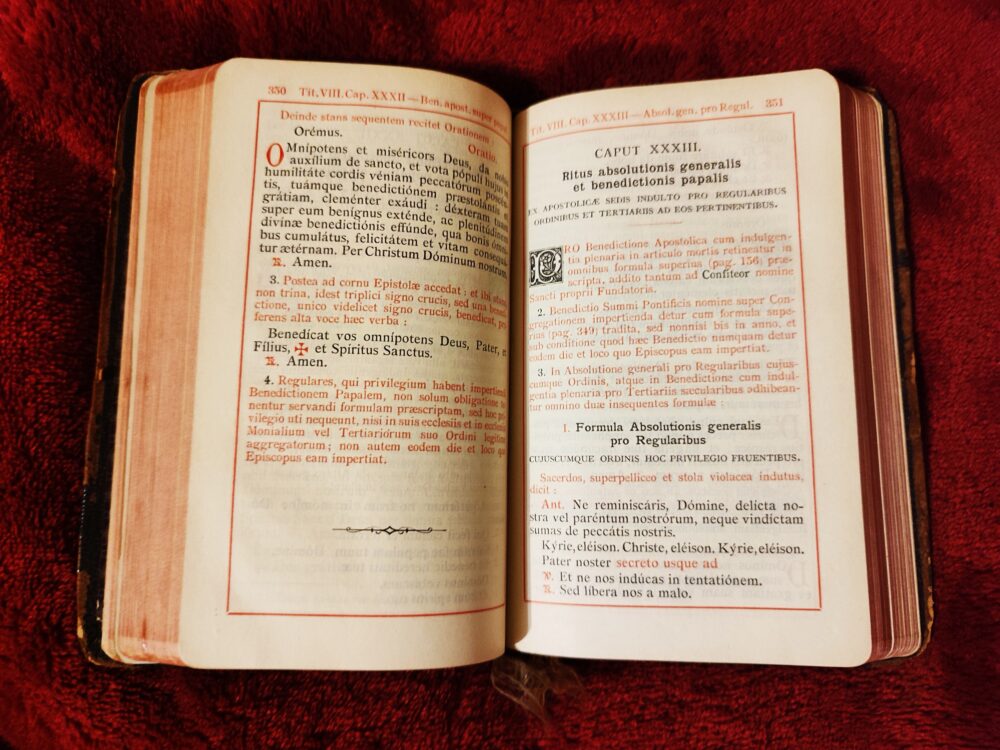 350 Tit. VIII. Cap. XXXII — Ben. apost. super
Deinde stans sequentem recitet Orationem :
Orémus. Oratio.
OMnípotens et miséricors Deus, da nobis
auxílium de sancto, et vota pópuli hujus in
humilitáte cordis véniam peccatórum poscén-
tis, tuámque benedictiónem præstolántis et
grátiam, cleménter exáudi : déxteram tuam
super eum benígnus exténde, ac plenitúdinem
divínæ benedictiónis effúnde, qua bonis ómni-
bus cumulátus, felicitátem et vitam consequá-
tur ætérnam. Per Christum Dóminum nostrum.
℟. Amen.
3. Postea ad cornu Epistolæ accedat : et ibi stans,
non trina, idest triplici signo crucis, sed una bene-
ctione, unico videlicet signo crucis, benedicat, pro-
ferens alta voce hæc verba :
Benedícat vos omnípotens Deus, Pater, et
Fílius, ✠ et Spíritus Sanctus.
℟. Amen.
4. Regulares, qui privilegium habent impertiendi
Benedictionem Papalem, non solum obligatione te-
nentur servandi formulam præscriptam, sed hoc pri-
vilegio uti nequeunt, nisi in suis ecclesiis et in ecclesiis
Monialium vel Tertiariórum suo Ordini legitime
aggregatorum; non autem eodem die et loco quo
Episcopus eam impertiat.
Tit. VIII. Cap. XXXIII — Absol. gen. pro Regul. 351
CAPUT XXXIII.
Ritus absolutionis generalis
et benedictionis papalis
EX APOSTOLICÆ SEDIS INDULTO PRO REGULARIBUS
ORDINIBUS ET TERTIARIIS AD EOS PERTINENTIBUS.
PRO Benedictione Apostolica cum indulgen-
tia plenaria in articulo mortis retineatur in
omnibus formula superius (pag. 156) præ-
scripta, addito tantum ad Confiteor nomine
Sancti proprii Fundatoris.
2. Benedictio Summi Pontificis nomine super Con-
gregationem impertienda detur cum formula supe-
rius (pag. 349) tradita, sed nonnisi bis in anno, et
sub conditione quod hæc Benedictio numquam detur
eodem die et loco quo Episcopus eam impertiat.
3. In Absolutione generali pro Regularibus cujus-
cumque Ordinis, atque in Benedictione cum indul-
gentia plenaria pro Tertiariis sæcularibus adhibean-
tur omnino duæ insequentes formulæ :
I. Formula Absolutionis generalis
pro Regularibus
CUJUSCUMQUE ORDINIS HOC PRIVILEGIO FRUENTIBUS.
Sacerdos, superpelliceo et stola violacea indutus,
dicit :
Ant. Ne reminiscáris, Dómine, delícta no-
stra vel paréntum nostrórum, neque vindíctam
sumas de peccátis nostris.
Kýrie, eléison. Christe, eléison. Kýrie, eléison.
Pater noster secreto usque ad
℣. Et ne nos indúcas in tentatiónem.
℟. Sed líbera nos a malo.